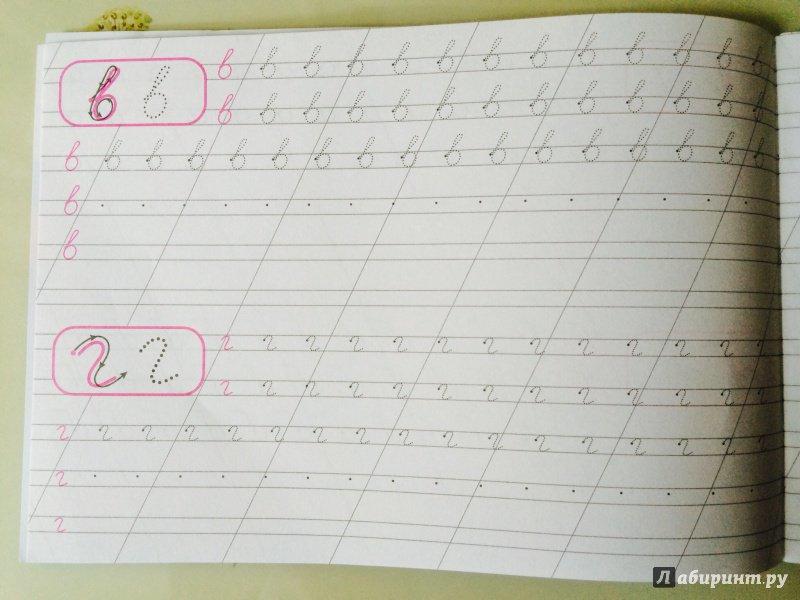 в в
в в в в в в в в в в в в в
в в в в в в в в в в в в в
в в в в в в в в в в в в в в в в в
в
в
г г
г г г г г г г г г г г г г
г г г г г г г г г г г г г
г г г г г г г г г г г г г г г г г
г
г
Лабиринт.ру